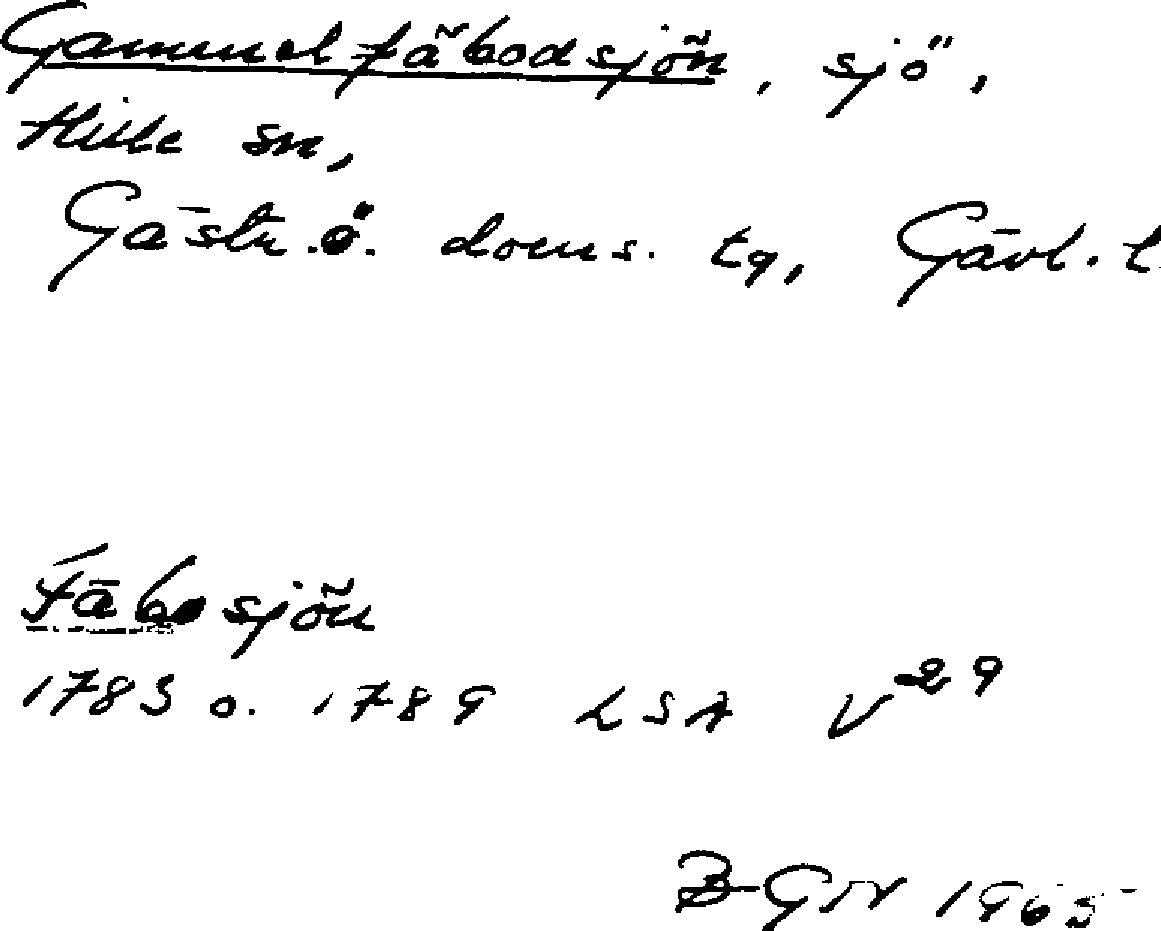 Gammelfäbodsjön, sjö,
Hille sn,
Gästr. ö. doms. tg, Gävl. l
Fäbosjön
1783 o. 1789 LSA V 29
B-GN 1965